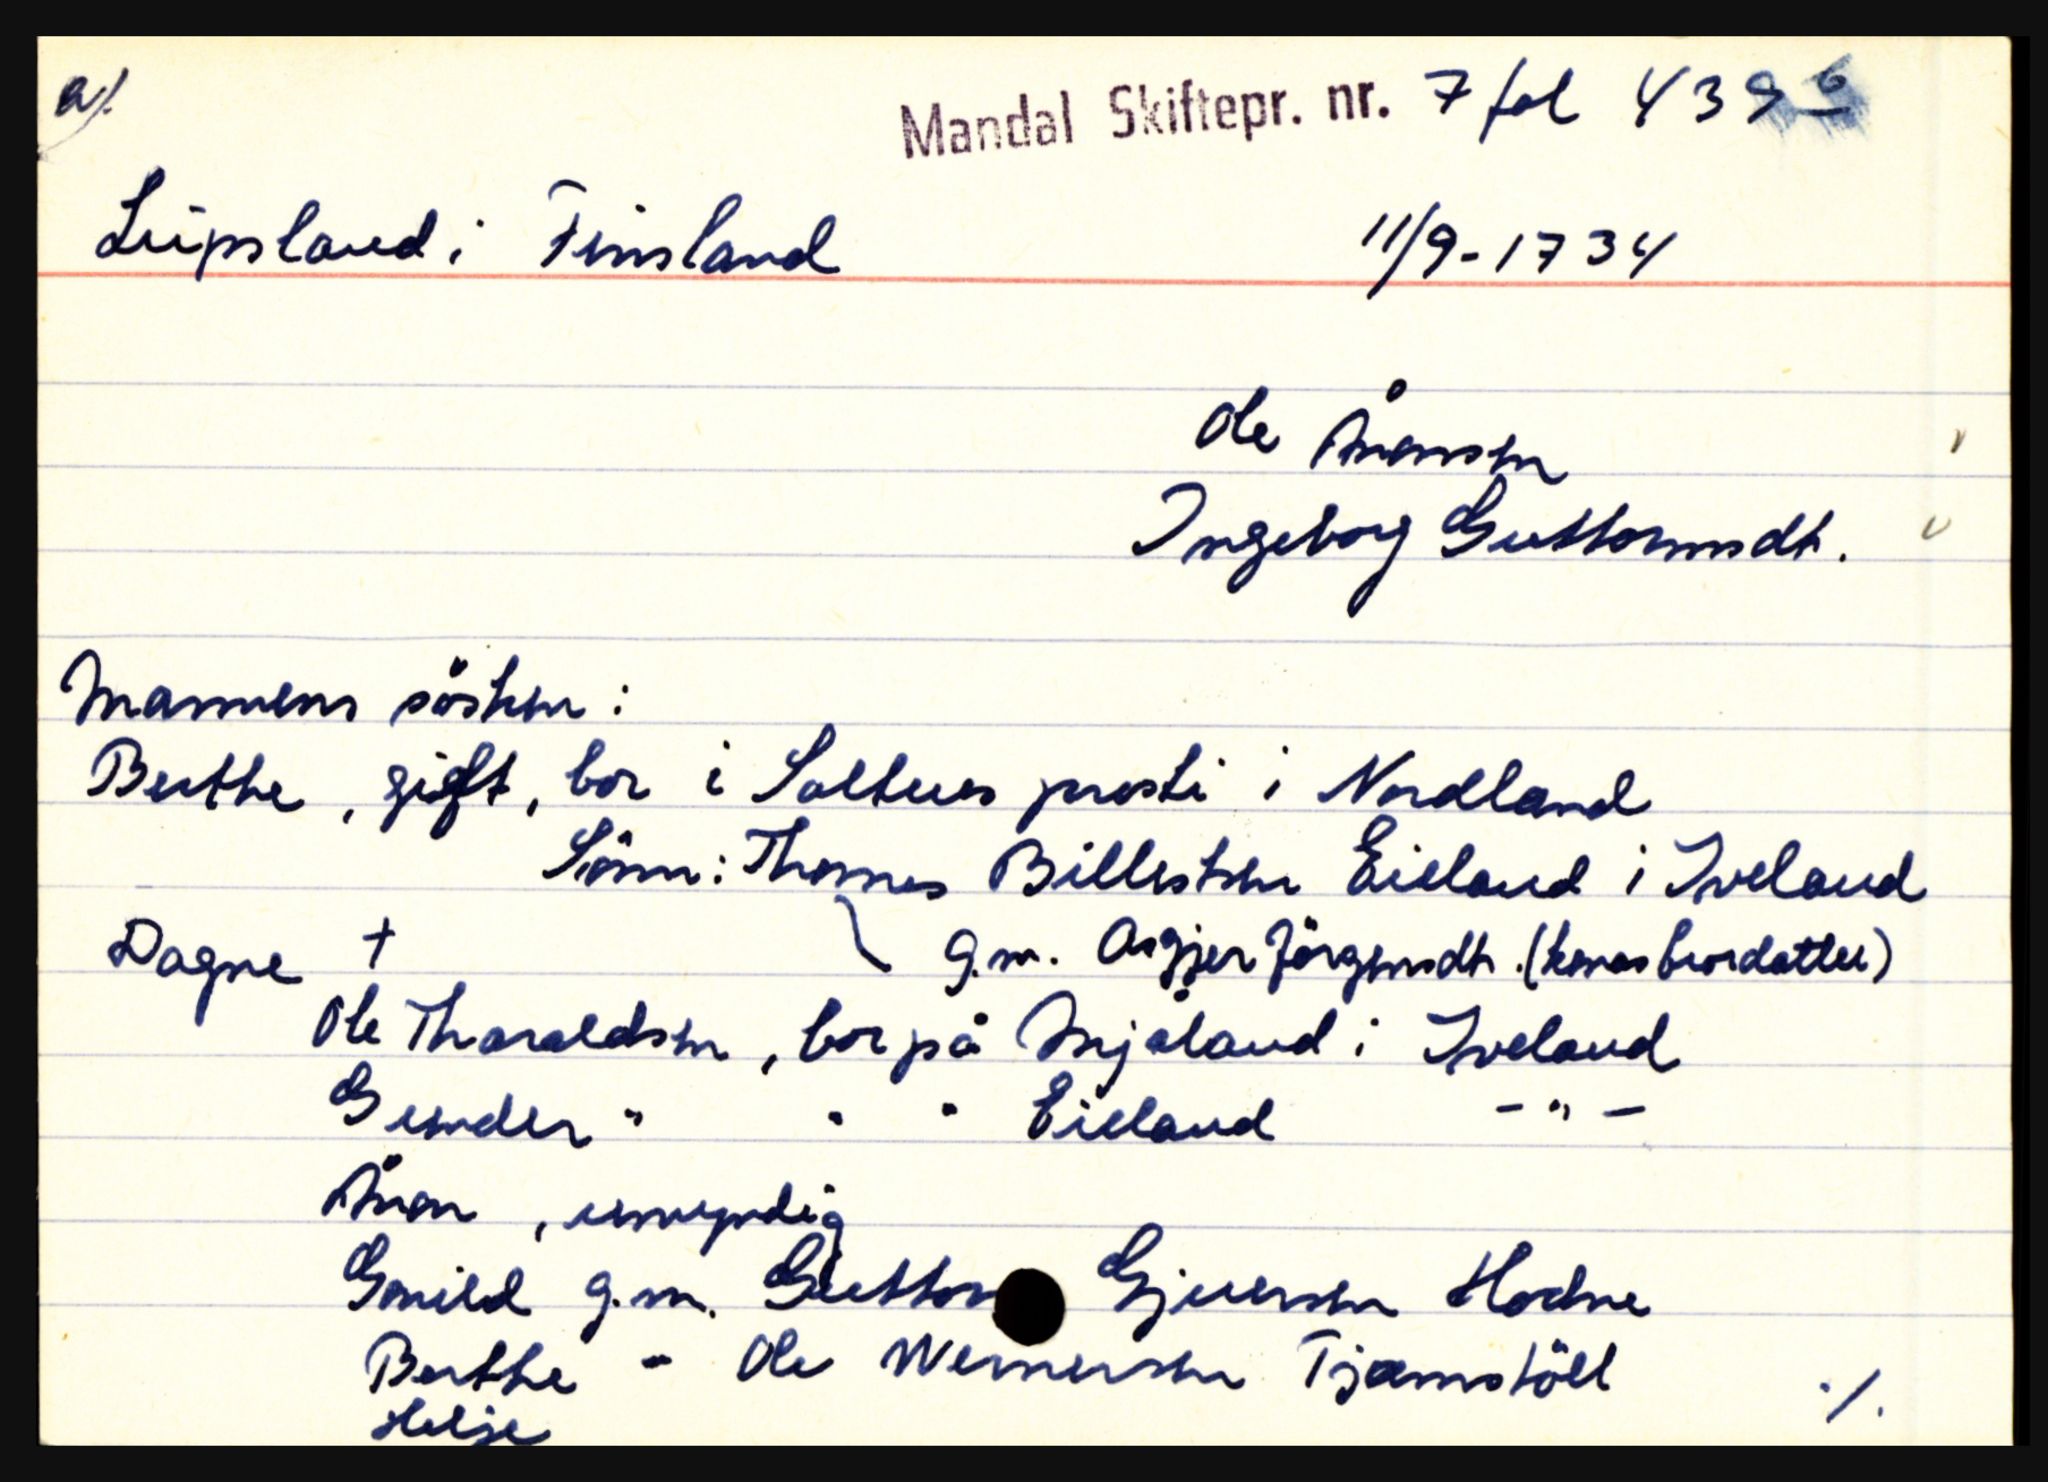 a/.
Mandal Skiftepr. nr. 7 fol 439 b
Lupsland i Finsland 11/9-1734
Ole Ånonsen
Ingeborg Guttormsdt.
Mannens sösken:
Berthe, gift, bor i Saltens prosti i Nordland
Sönn: Thomes Billestsen Eieland i Iveland
Dagne † g.m. Asgjer Jörgensdt. (konas brordatter)
Ole Tharaldsen, bor på Mjåland i Iveland
Gunder " " " Eieland - " -
Ånon, umyndig
Gunild g.m. Guttorm Gjuersen Hodne
Berthe - Ole Wernersen Tjomstöll
Helje ./.